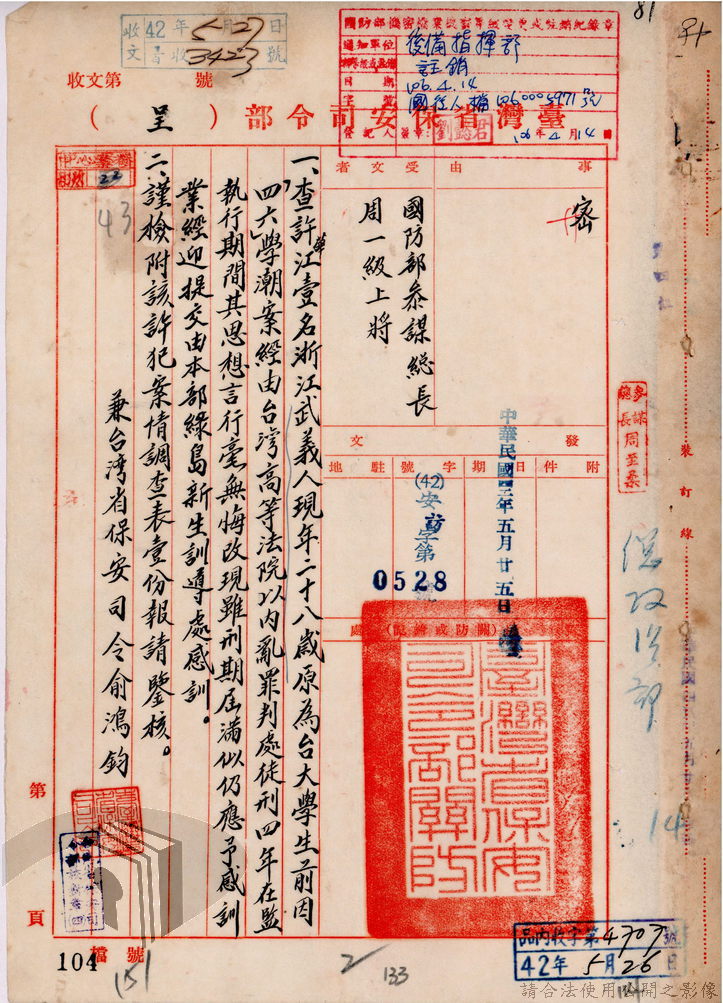 收文 42年5月27日
普收3423號
收文第 號
後備指揮部
註銷
106.4.14
劉懿君
106年4月14日
臺灣省保安司令部(呈)
事由
受文者
密
國防部參謀總長
周一級上將
發文
附件
日期
字號
駐地
中華民國四二年五月廿五日
(42)安訪字第0528號
一、查許華江壹名浙江武義人現年二十八歲原為台大學生前因
「四六」學潮案經由台灣高等法院以內亂罪判處徒刑四年在監
執行期間其思想言行毫無悔改現雖刑期屆滿似仍應予感訓
業經迎提交由本部綠島新生訓導處感訓。
二、謹檢附該許犯案情調查表壹份報請鑒核。
兼台灣省保安司令俞鴻鈞
臺灣省保安司令部關防
參謀總長周至柔
裝訂線
總政治部
14
品內收字第4707號
42年5月26日
43
81
第 頁
檔號
104
151
2
133
請合法使用公開之影像